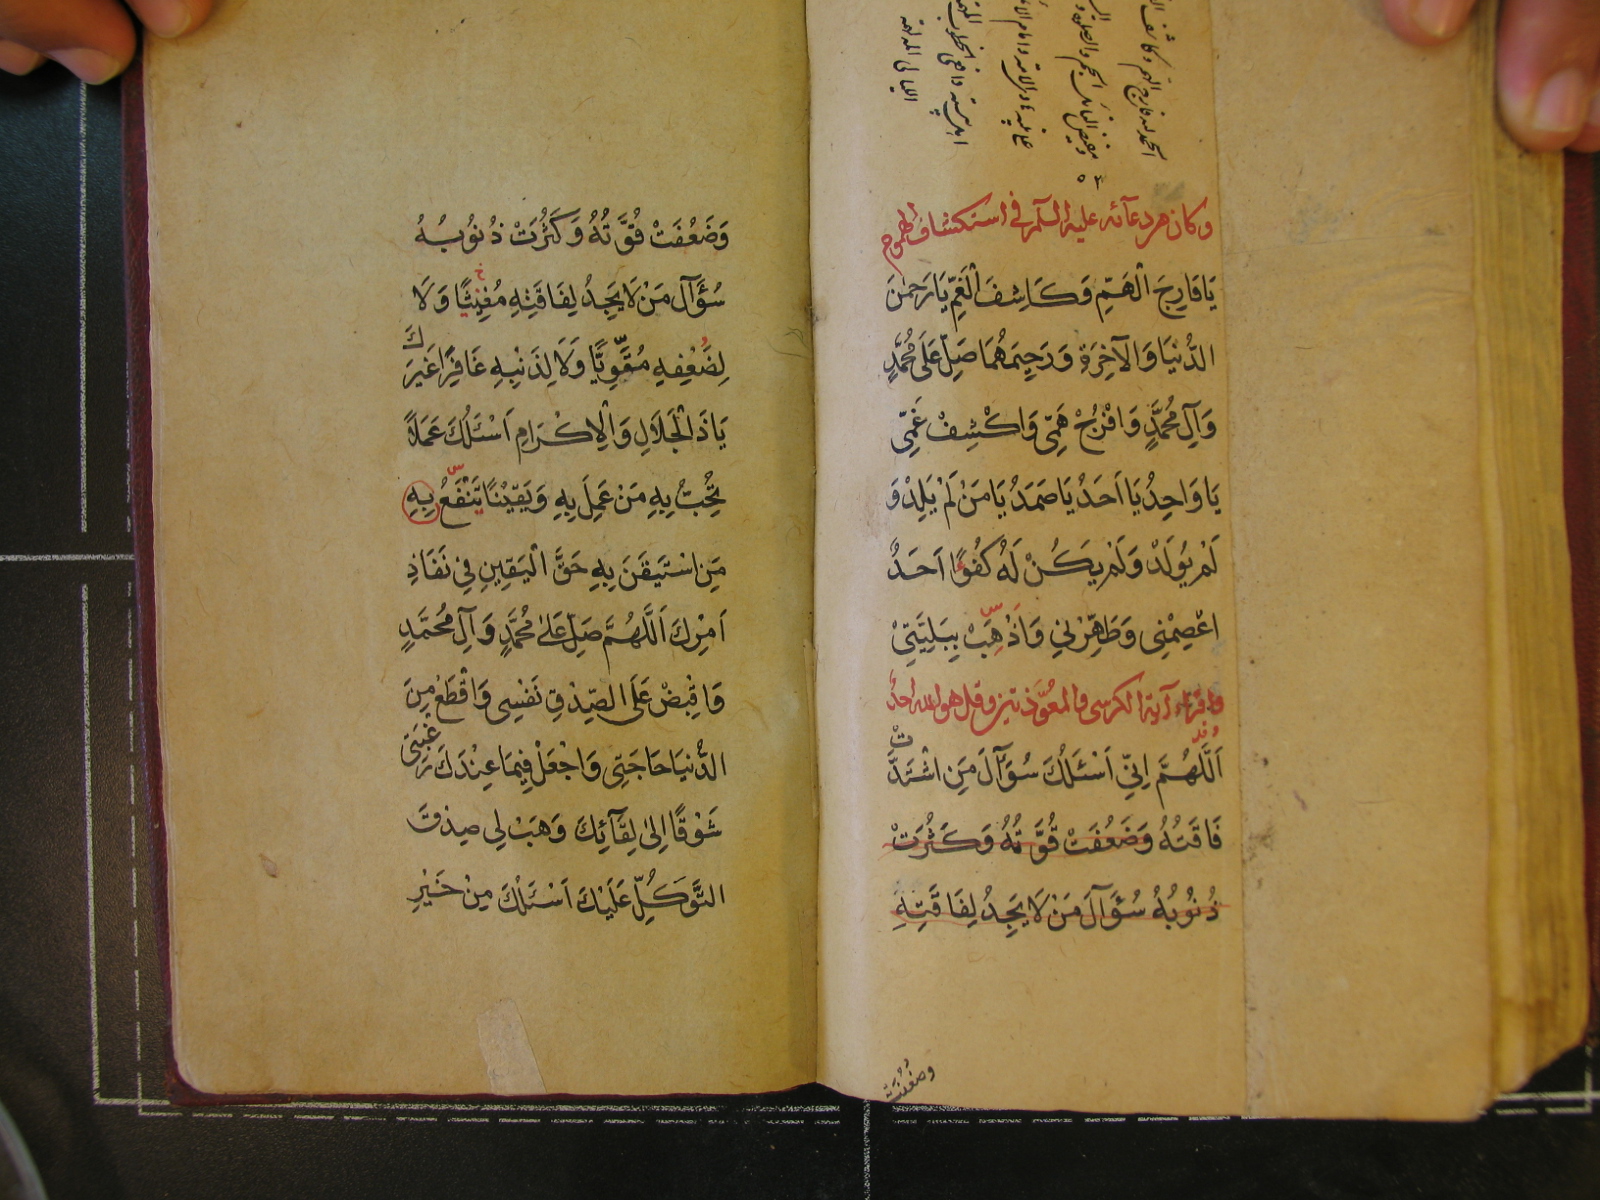 وكان من دعائه عليه السلام في استكشاف الهموم
يَا فَارِجَ الْهَمِّ وَكَاشِفَ الْغَمِّ يَا رَحْمٰنَ
الدُّنْيَا وَالْآخِرَةِ وَرَحِيمَهُمَا صَلِّ عَلَى مُحَمَّدٍ
وَآلِ مُحَمَّدٍ وَافْرُجْ هَمِّي وَاكْشِفْ غَمِّي
يَا وَاحِدُ يَا اَحَدُ يَا صَمَدُ يَا مَنْ لَمْ يَلِدْ وَ
لَمْ يُولَدْ وَلَمْ يَكُنْ لَهُ كُفُوًا اَحَدٌ
اعْصِمْنِي وَطَهِّرْنِي وَاَذْهِبْ بِبَلِيَّتِيْ
واقرأ آية الكرسي والمعوّذتين وقل هو الله احد
وقل
اَللّٰهُمَّ اِنِّي اَسْئَلُكَ سُؤَالَ مَنِ اشْتَدَّتْ
فَاقَتُهُ وَضَعُفَتْ قُوَّتُهُ وَكَثُرَتْ
ذُنُوبُهُ سُؤَالَ مَنْ لَا يَجِدُ لِفَاقَتِهِ
وضعفت
وَضَعُفَتْ قُوَّتُهُ وَكَثُرَتْ ذُنُوبُهُ
سُؤَالَ مَنْ لَا يَجِدُ لِفَاقَتِهِ مُغِيْثًا وَلَا
لِضَعْفِهِ مُقَوِّيًا وَلَا لِذَنْبِهِ غَافِرًا غَيْرَكَ
يَا ذَا الْجَلَالِ وَالْاِكْرَامِ اَسْئَلُكَ عَمَلًا
تُحِبُّ بِهِ مَنْ عَمِلَ بِهِ وَيَقِيْنًا تَنْفَعُ بِهِ
مَنِ اسْتَيْقَنَ بِهِ حَقَّ الْيَقِينِ فِي نَفَاذِ
اَمْرِكَ اَللّٰهُمَّ صَلِّ عَلٰى مُحَمَّدٍ وَآلِ مُحَمَّدٍ
وَاقْبِضْ عَلَى الصِّدْقِ نَفْسِي وَاقْطَعْ مِنَ
الدُّنْيَا حَاجَتِي وَاجْعَلْ فِيمَا عِنْدَكَ رَغْبَتِي
شَوْقًا اِلٰى لِقَائِكَ وَهَبْ لِي صِدْقَ
التَّوَكُّلِ عَلَيْكَ اَسْئَلُكَ مِنْ خَيْرِ